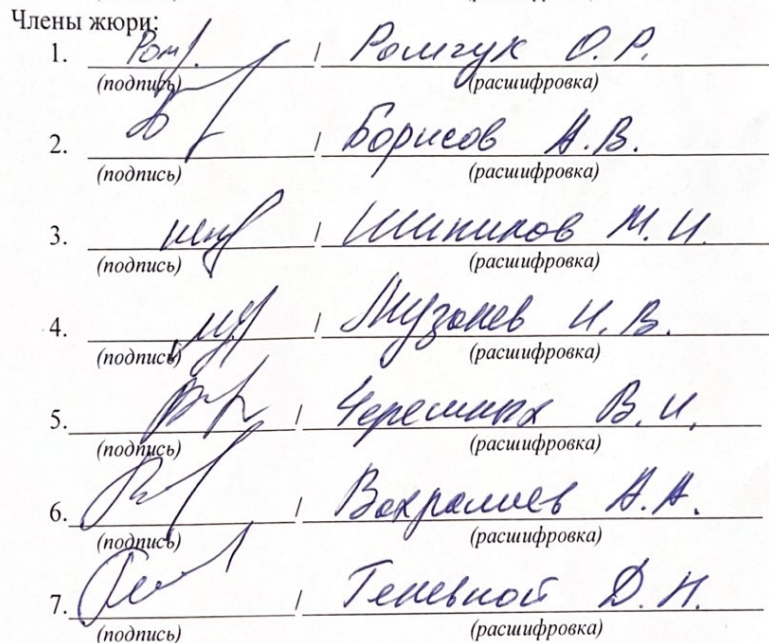 Члены жюри:
1. Ром / Ромгук О.Р.
(подпись) (расшифровка)
2. / Борисов А.В.
(подпись) (расшифровка)
3. / Шипиков М.И.
(подпись) (расшифровка)
4. / Музонев И.В.
(подпись) (расшифровка)
5. / Черемных В.И.
(подпись) (расшифровка)
6. / Вахрамеев А.А.
(подпись) (расшифровка)
7. / Теневной Д.Н.
(подпись) (расшифровка)